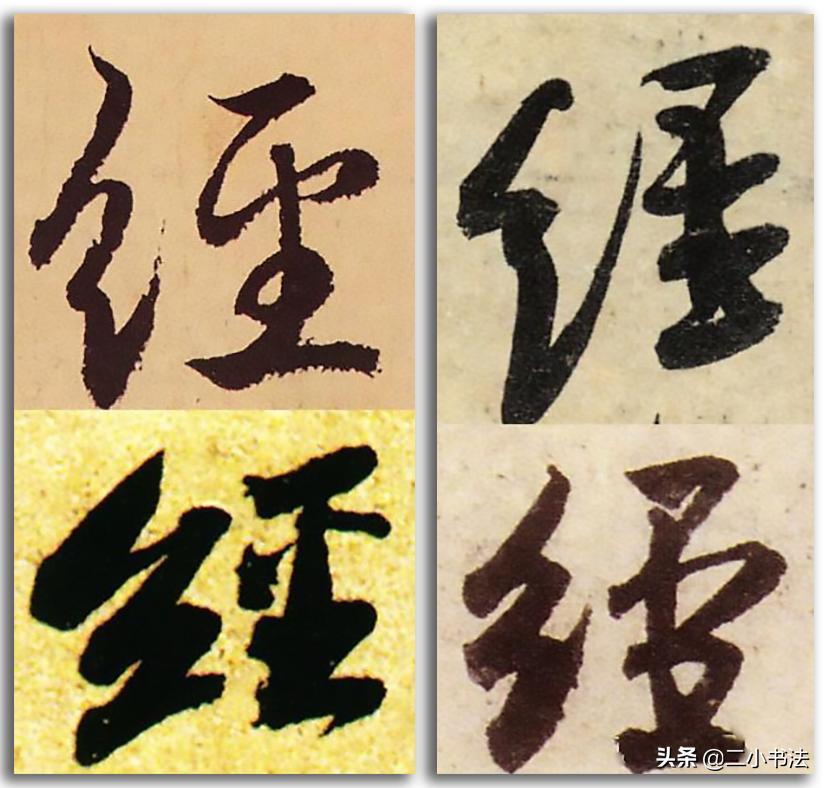 經 經
經 經
头条 @二小书法